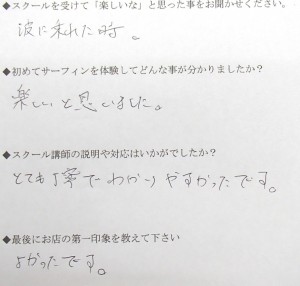 ◆スクールを受けて「楽しいな」と思った事をお聞かせください。
波に乗れた時。
◆初めてサーフィンを体験してどんな事が分かりましたか？
楽しいと思いました。
◆スクール講師の説明や対応はいかがでしたか？
とても丁寧でわかりやすかったです。
◆最後にお店の第一印象を教えて下さい
よかったです。